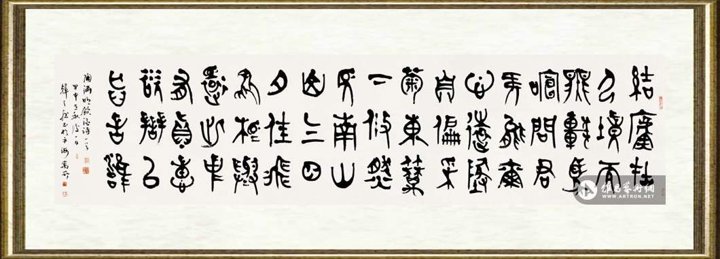 結廬在
人境而
無車馬
喧問君
何能爾
心遠地
自偏采
菊東籬
下悠然
見南山
山氣日
夕佳飛
鳥相與
還此中
有真意
欲辯已
忘言
陶淵明飲酒詩一首
雅昌艺术网
WWW.ARTRON.NET